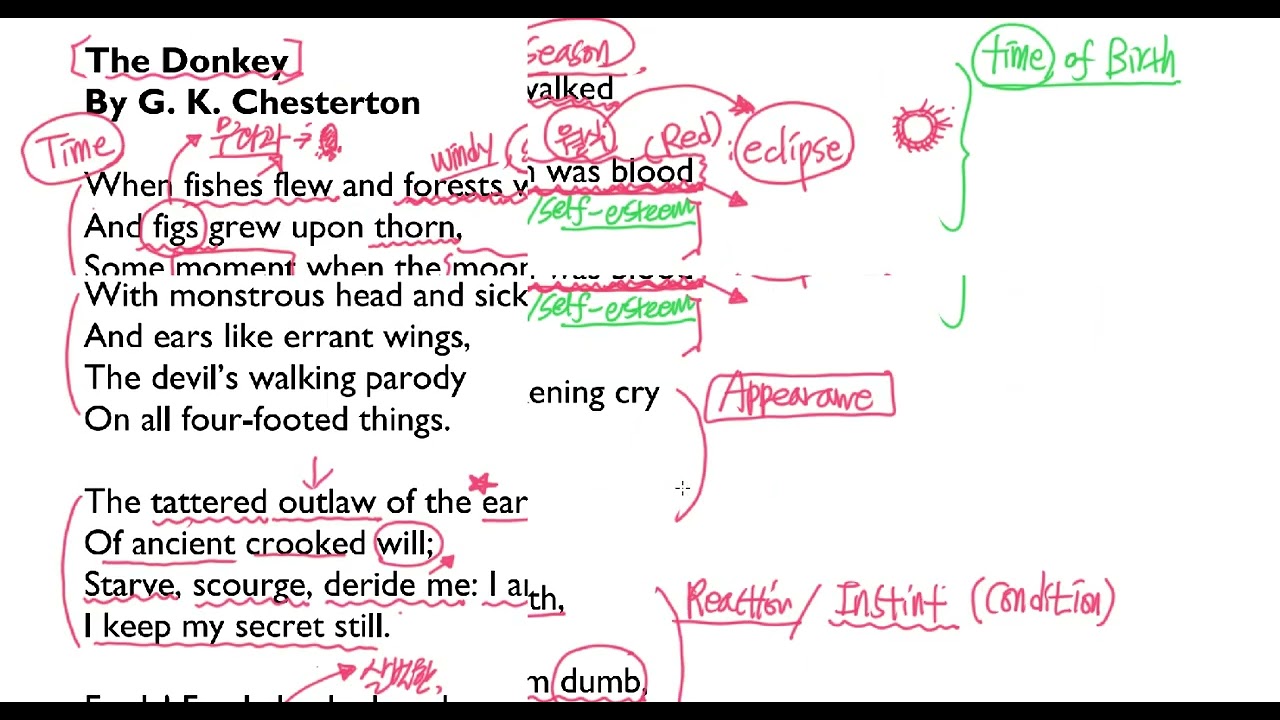 [The Donkey]
By G. K. Chesterton
Season
walked
time of Birth
Time
무화과
windy
월식
(Red)
eclipse
When fishes flew and forests w
was blood
And figs grew upon thorn,
/self-esteem
Some moment when the moon
was blood
With monstrous head and sick
/self-esteem
And ears like errant wings,
The devil's walking parody
ening cry
Appearawe
On all four-footed things.
The tattered outlaw of the ear
Of ancient crooked will;
Starve, scourge, deride me: I a
th,
Reaction / Instint (condition)
I keep my secret still.
m dumb,